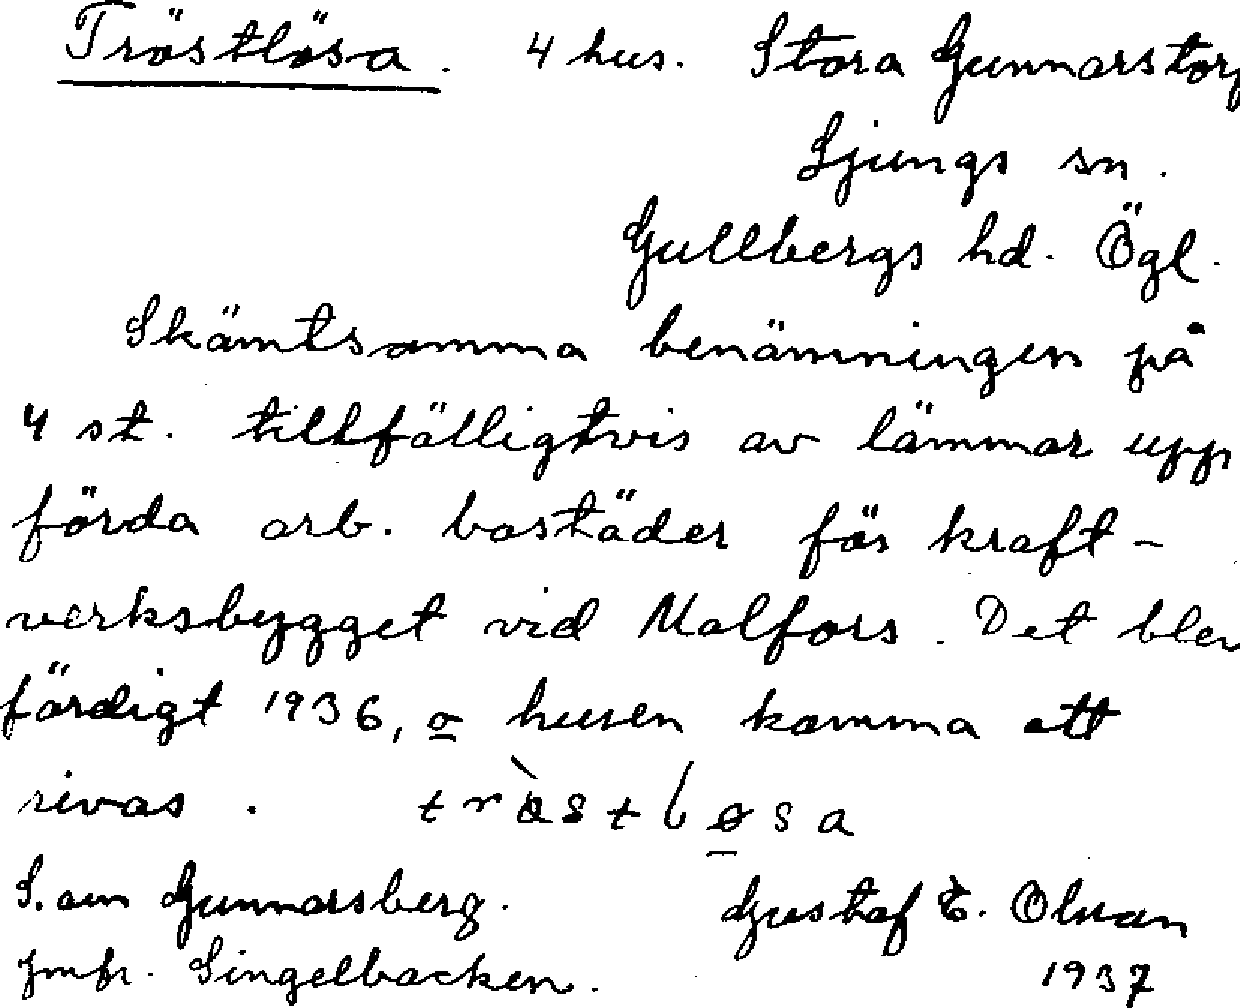 Tröstlösa. 4 hus. Stora Gunnarstorp
Ljungs sn.
Gullbergs hd. Ögl.
Skämtsamma benämningen på
4 st. tillfälligtvis av lämmar upp
förda arb. bostäder för kraft-
verksbygget vid Malfors. Det blev
färdigt 1936, o husen komma att
rivas.
S. om Gunnarsberg. Gustaf E. Olsson
jmfr. Singelbacken. 1937